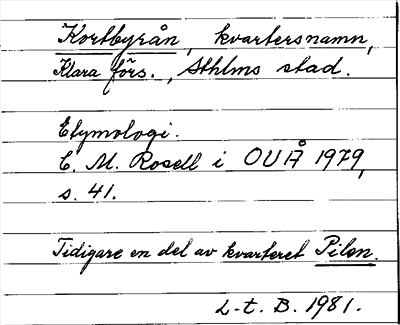 Kortbyrån, kvartersnamn,
Klara förs., Sthlms stad.
Etymologi.
C. M. Rosell i OUÅ 1979,
s. 41.
Tidigare en del av kvarteret Pilen.
L-t. B. 1981.